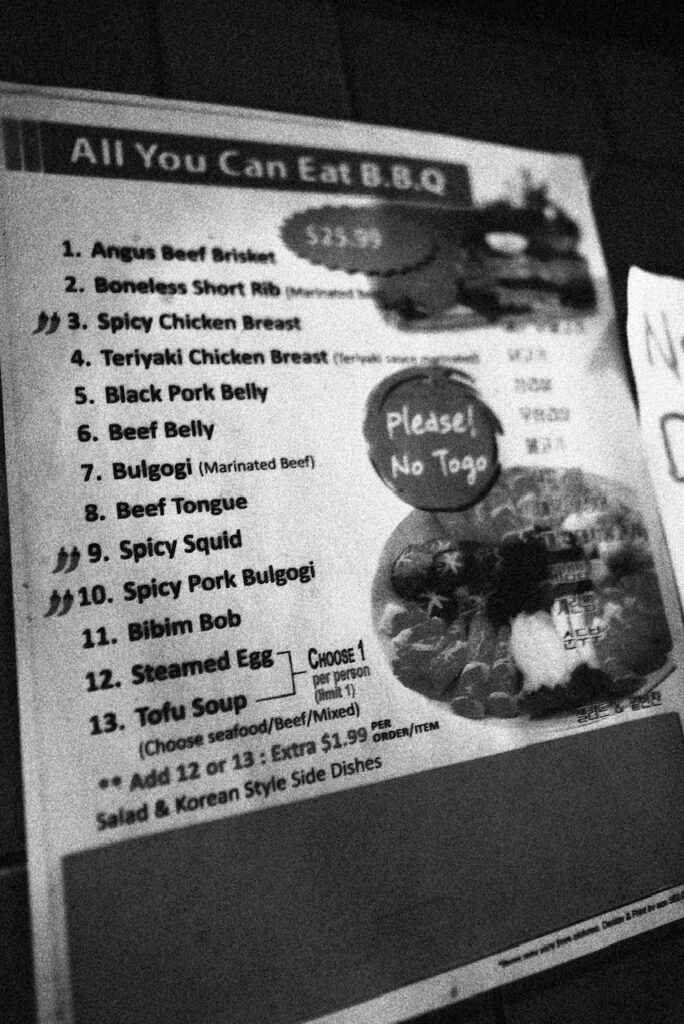 All You Can Eat B.B.Q
$25.99
1. Angus Beef Brisket
2. Boneless Short Rib (Marinated
3. Spicy Chicken Breast
4. Teriyaki Chicken Breast (Teriyaki sauce marinated)
5. Black Pork Belly
6. Beef Belly
7. Bulgogi (Marinated Beef)
8. Beef Tongue
9. Spicy Squid
10. Spicy Pork Bulgogi
11. Bibim Bob
12. Steamed Egg
13. Tofu Soup
CHOOSE 1
per person
(limit 1)
(Choose seafood/Beef/Mixed)
** Add 12 or 13 : Extra $1.99 PER ORDER/ITEM
Salad & Korean Style Side Dishes
Please!
No Togo
불고기
계란찜
순두부